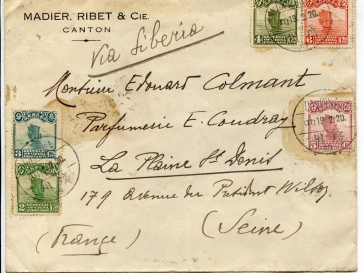 MADIER, RIBET & CIE.
CANTON
Via Siberia
Monsieur Edouard Colmant
Parfumerie E. Coudray
La Plaine St Denis
179 Avenue du Président Wilson
(Seine)
(France)